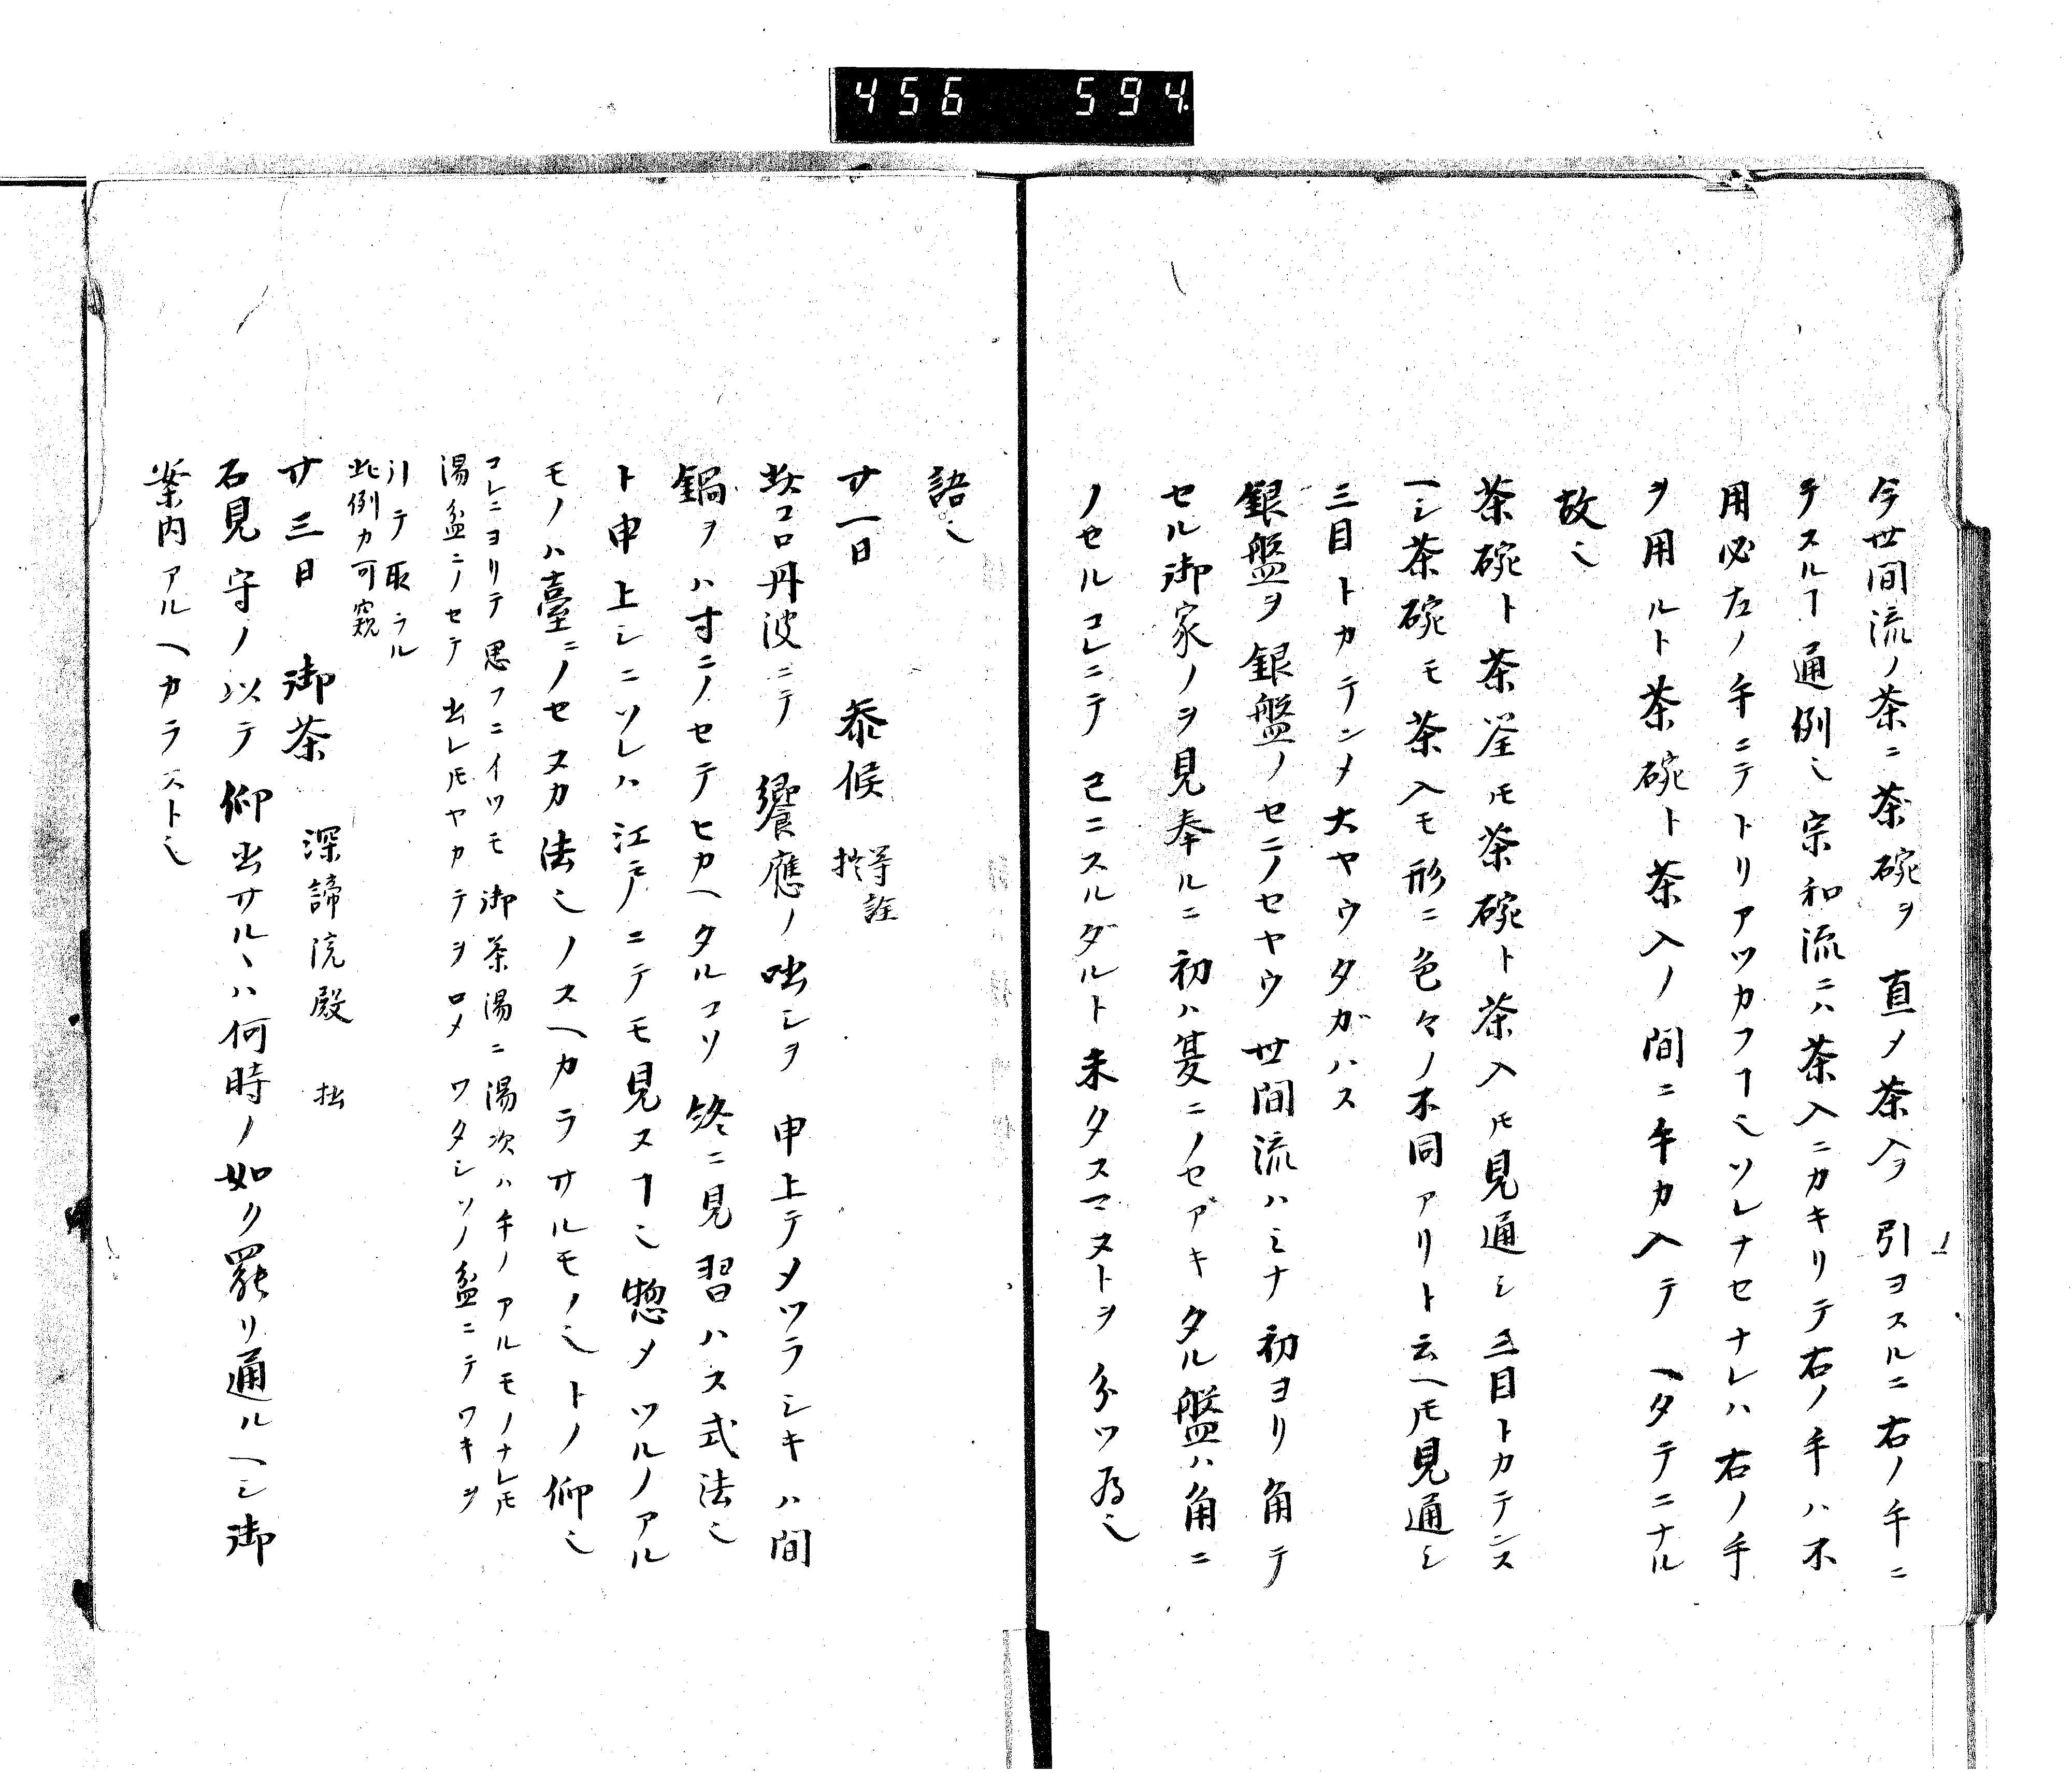 456 594
今世間流ノ茶ニ茶碗ヲ直〆茶入ヲ引ヨスルニ右ノ手ニ
テスルヿ通例也宗和流ニハ茶入ニカキリテ右ノ手ハ不
用必左ノ手ニテトリアツカフヿ也ソレナセナレハ右ノ手
ヲ用ルト茶碗ト茶入ノ間ニ手カ入テヘタテニナル
故也
茶碗ト茶筌𪜈茶碗ト茶入𪜈見通シ三目トカテンス
ヘシ茶碗モ茶入モ形ニ色々ノ不同アリト云ヘ𪜈見通シ
三目トカテン〆大ヤウタガハス
銀盤ヲ銀盤ノセニノセヤウ世間流ハミナ初ヨリ角テ
セル御家ノヲ見奉ルニ初ハ爰ニノセアキタル盤ハ角ニ
ノセルコレニテ已ニスルダルト未タスマヌトヲ分ツ為也
語也
廿一日 参候 拙 等詮
此コロ丹波ニテ饗應ノ咄シヲ申上テメツラシキハ間
鍋ヲハ寸ニノセテヒカヘタルコソ終ニ見習ハス式法也
ト申上シニソレハ江戸ニテモ見スヿ也惣〆ツルノアル
モノハ臺ニノセヌカ法也ノスヘカラサルモノ也トノ仰也
コレニヨリテ思フニイツモ御茶湯ニ湯次ハ手ノアルモノナレ𪜈
湯盆ニノセテ出レ𪜈ヤカテヲロ〆ワタシソノ盆ニテワキヲ
引テ取ラル
此例カ可窺
廿三日 御茶 深諦院殿 拙
石見守ノ以テ仰出サルヽハ何時ノ如ク罷リ通ルヘシ御
案内アルヘカラスト也